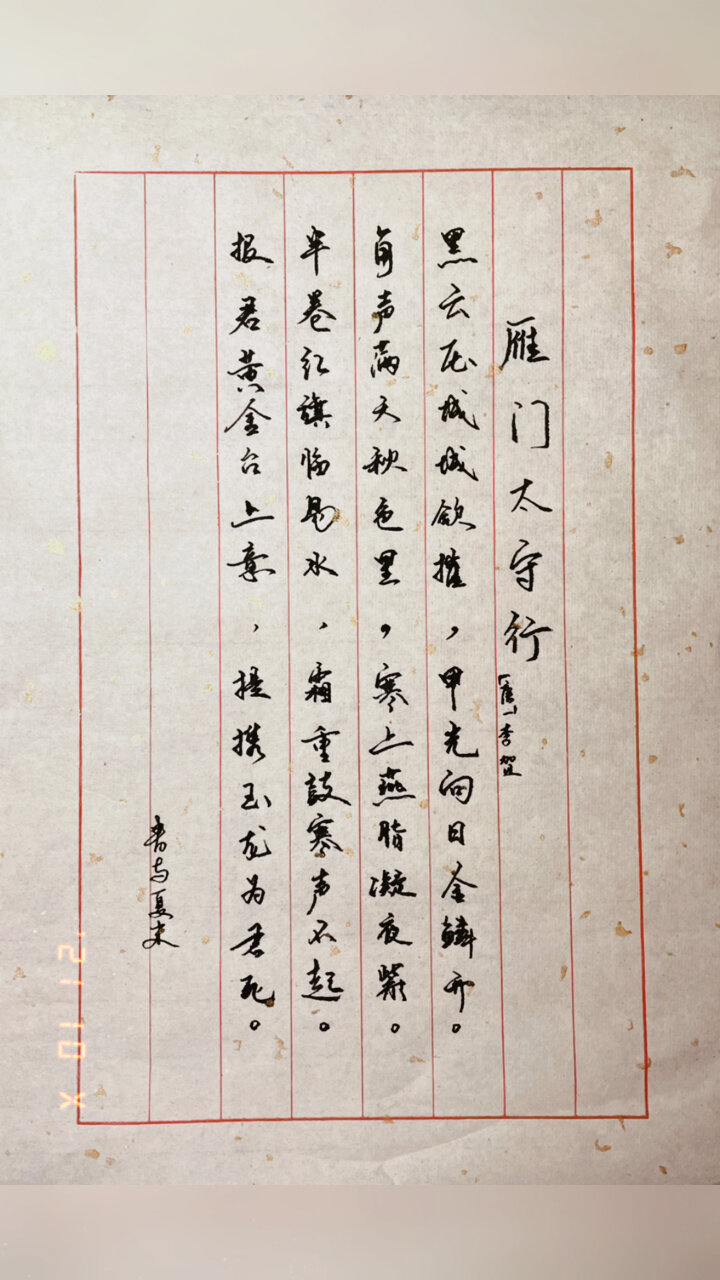 雁门太守行
「唐」李贺
黑云压城城欲摧，甲光向日金鳞开。
角声满天秋色里。寒上燕脂凝夜紫。
半卷红旗临易水，霜重鼓寒声不起。
报君黄金台上意，提携玉龙为君死。
書与夏末
X 10 '21